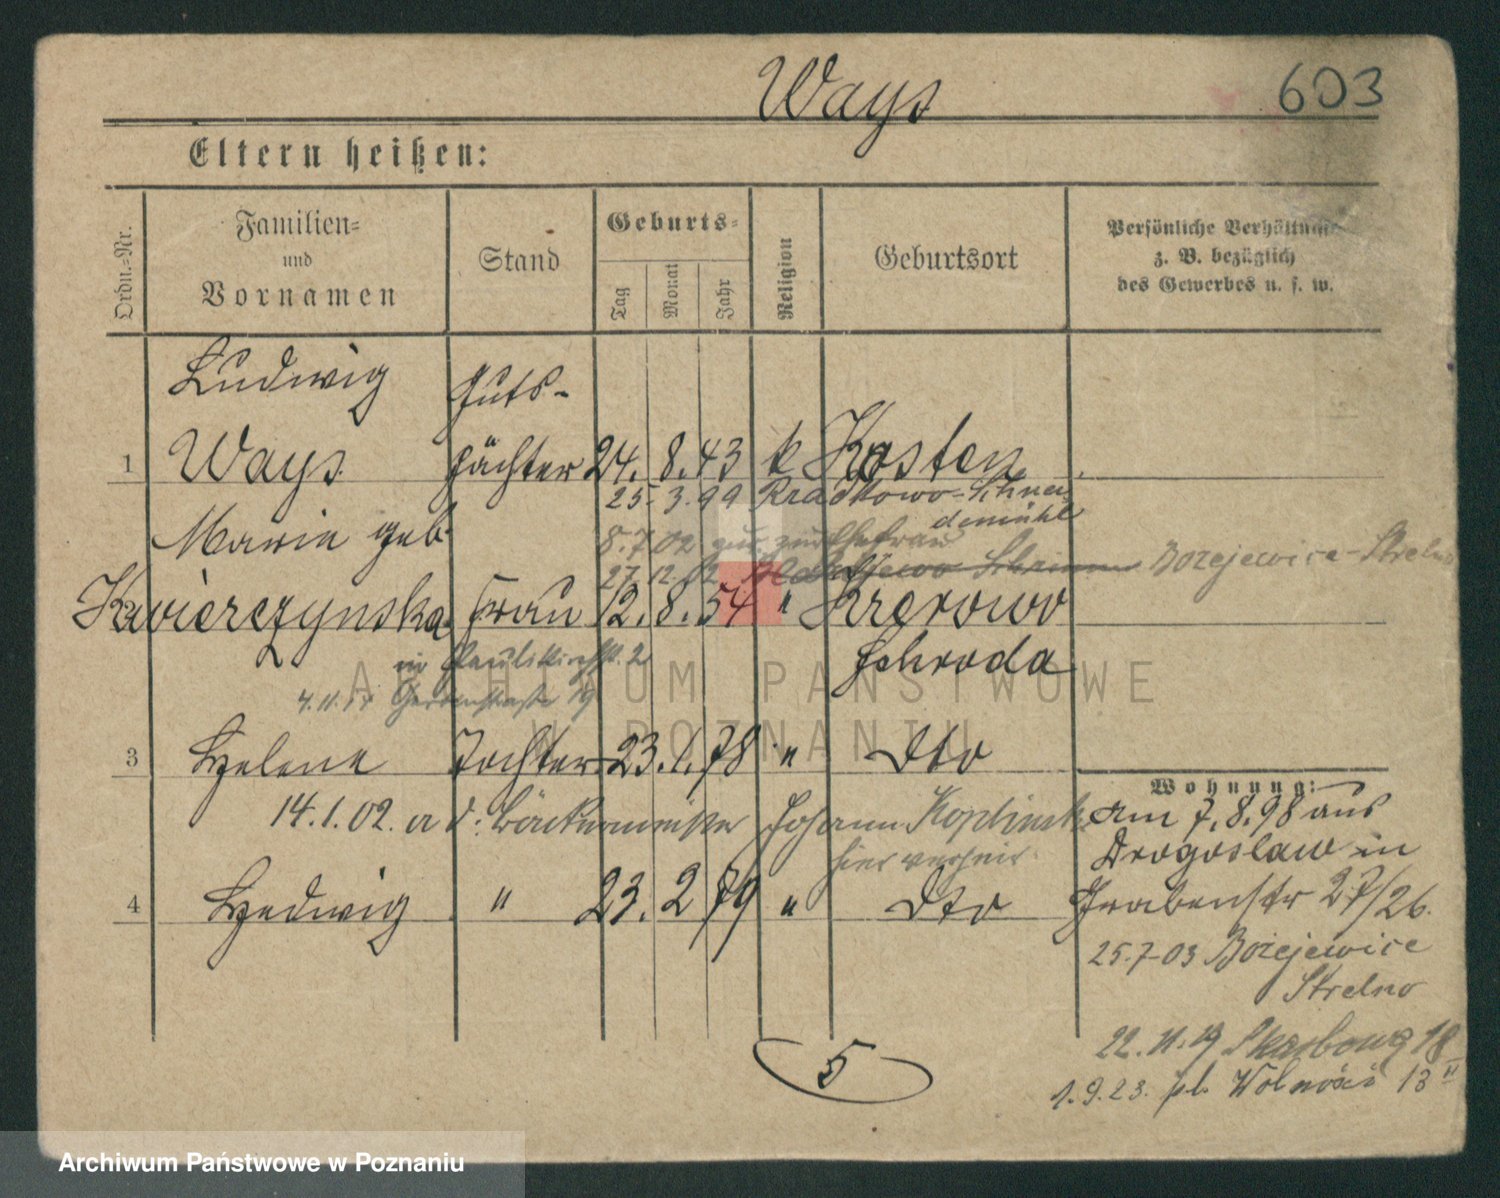 Ways
603
Eltern heißen:
Ordn.-Nr.
Familien-
und
Vornamen
Stand
Geburts-
Tag
Monat
Jahr
Religion
Geburtsort
Persönliche Verhältnisse
z. B. bezüglich
des Gewerbes u. s. w.
Ludwig Guts-
1 Ways pächter 24. 8. 43 k Kosten
25. 3. 99 Kradkowo-Schnei-
demühl
Marie geb.
8.7.02 zur Ehefrau
27.12.02 Borejewice-Strelno
Kwierczynska Frau 12. 8. 54 " Krerowo
Schroda
in Paulikirchstr. 2
4.11. Gartenstraße 19
3 Helene Tochter 23. 1. 78 " Dto
14.1.02. a d. Bäckermeister Johann
hier verheir.
4 Hedwig " 23. 2 79 " Dto
Wohnung:
Am 7. 8. 98 aus
Drogoslaw in
Grabenstr 27/26.
25.7.03 Borejewice
Strelno
22.11.19 Skarbowa 18
1.9.23. pl. Wolności 13 II
5
ARCHIWUM PAŃSTWOWE
W POZNANIU
Archiwum Państwowe w Poznaniu